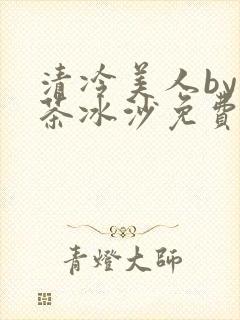 清冷美人by
茶冰沙免費
青燈大師